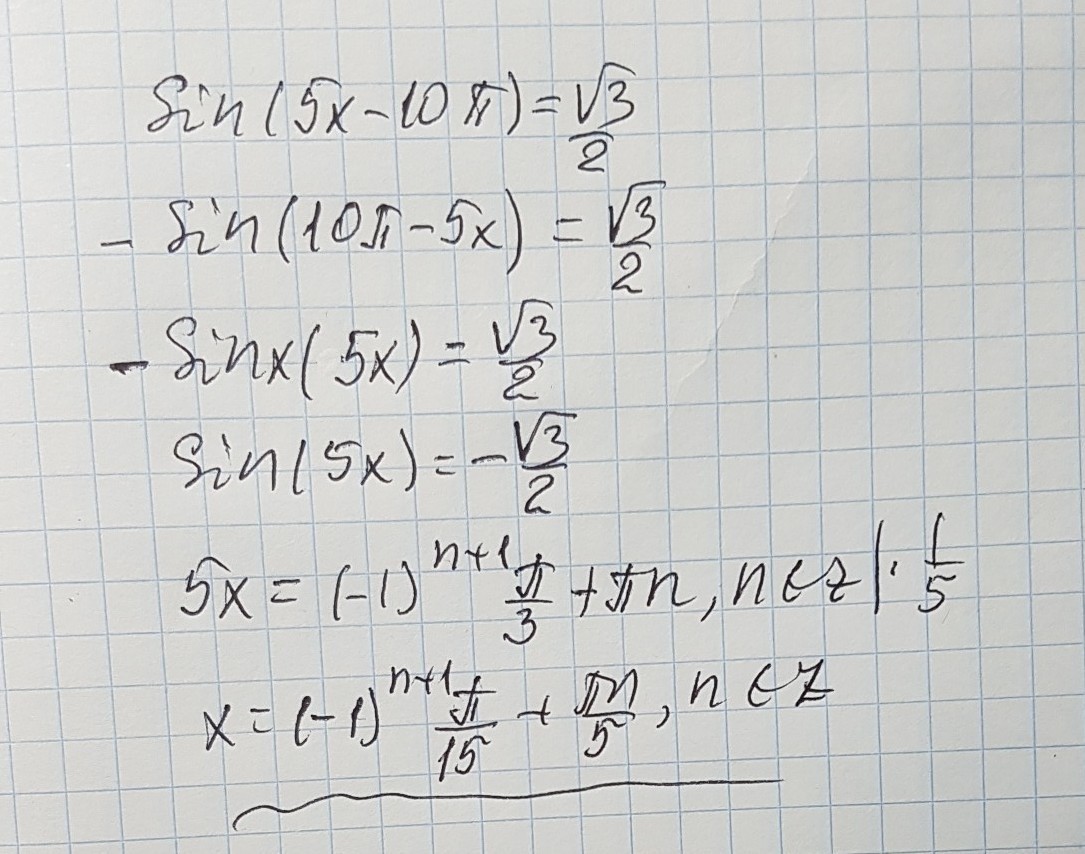 Sin(5x-10π)=√3/2
-Sin(10π-5x)=√3/2
-Sinx(5x)=√3/2
Sin(5x)=-√3/2
5x=(-1)^(n+1) π/3+πn, n∈z |·1/5
x=(-1)^(n+1) π/15+πn/5, n∈z